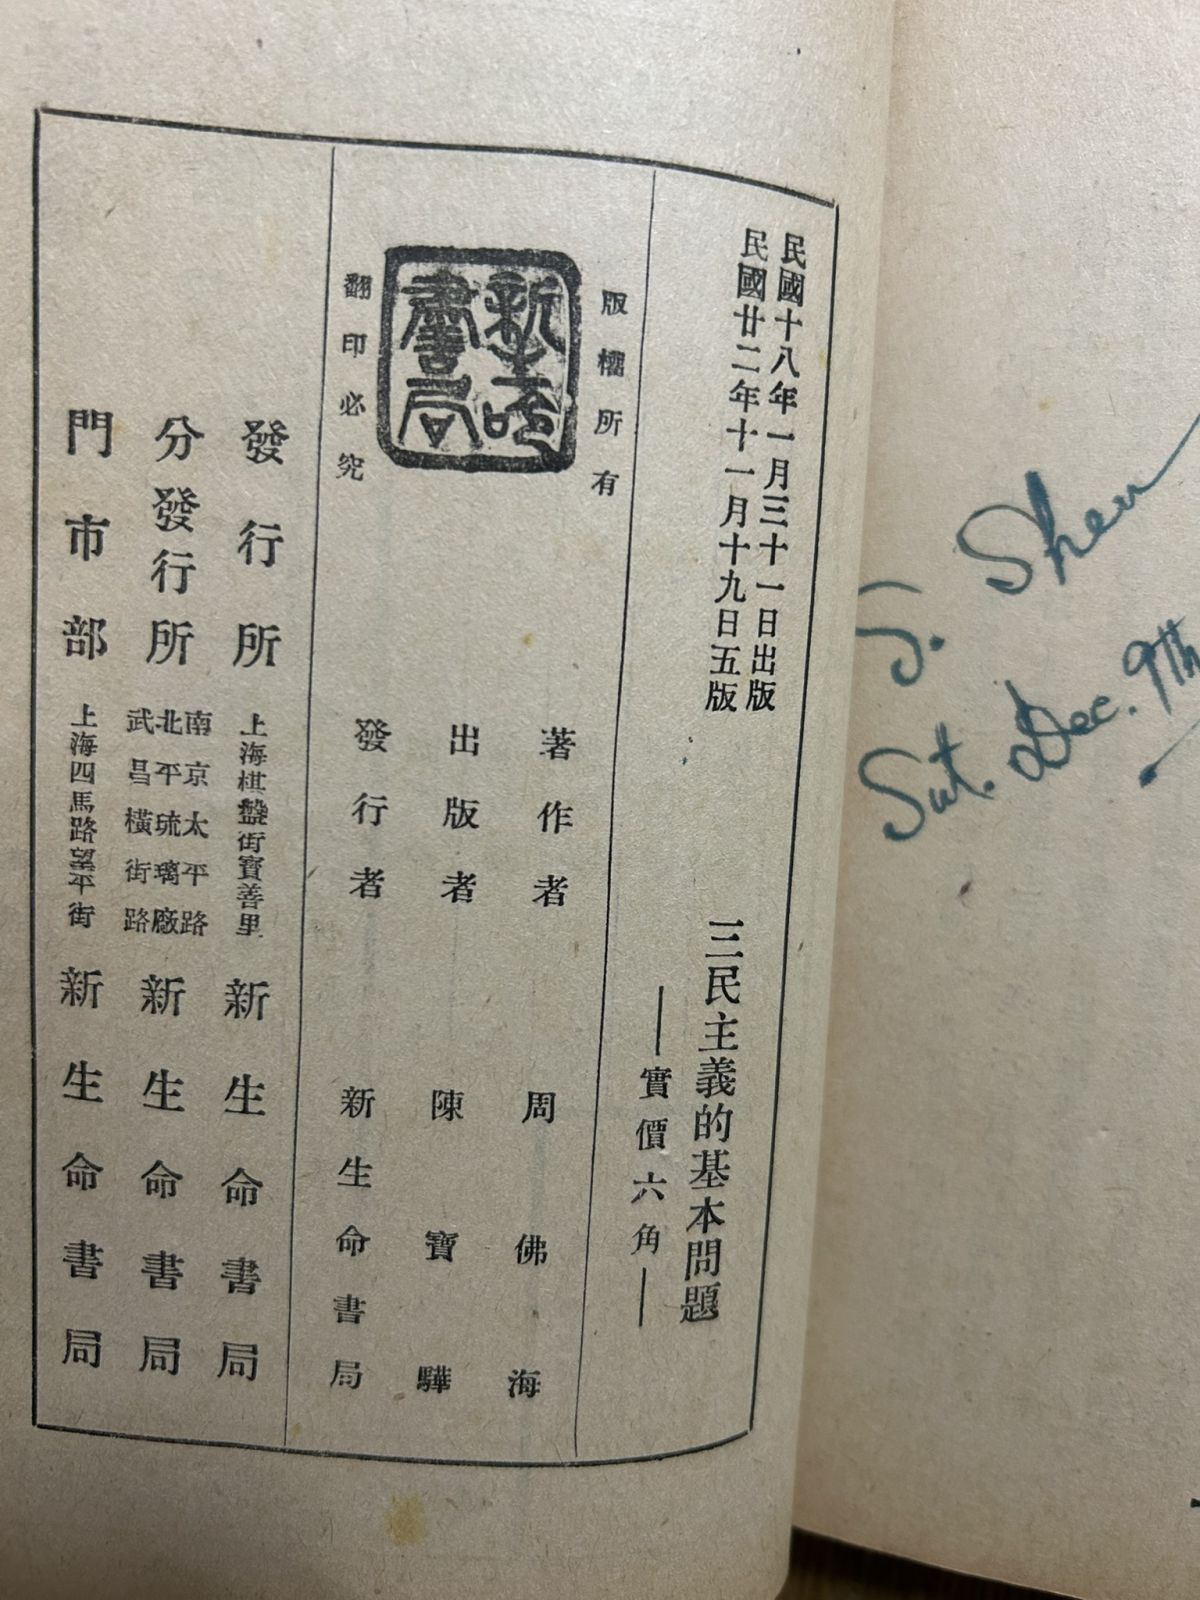 民國十八年一月三十一日出版
民國廿二年十一月十九日五版
三民主義的基本問題
——實價六角——
版權所有
新生命書局
翻印必究
著作者 周佛海
出版者 陳寶驊
發行者 新生命書局
發行所 上海棋盤街寶善里 新生命書局
分發行所 南京太平路 北平琉璃廠 武昌橫街路 新生命書局
門市部 上海四馬路望平街 新生命書局
S. Shen
Sat. Dec. 9th